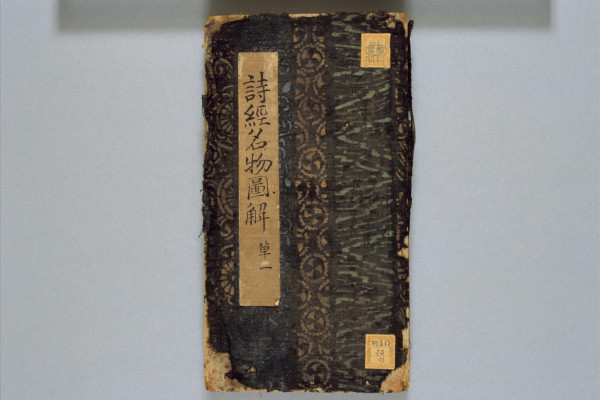 詩經名物圖解
草一